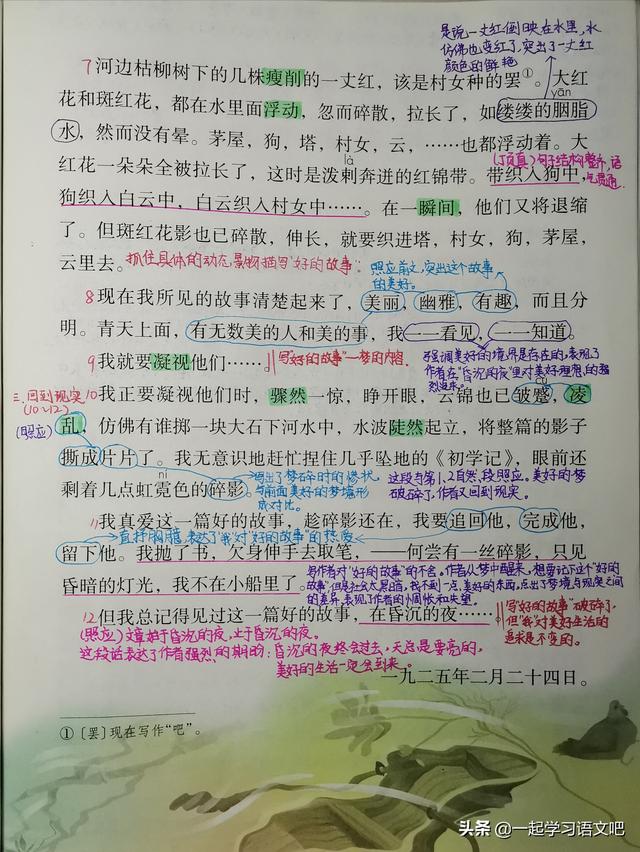 是说一丈红倒映在水里,水
仿佛也变红了,突出了一丈红
颜色的鲜艳
7河边枯柳树下的几株瘦削的一丈红,该是村女种的罢①。大红
yān
花和斑红花,都在水里面浮动,忽而碎散,拉长了,如缕缕的胭脂
水,然而没有晕。茅屋,狗,塔,村女,云,……也都浮动着。大
là
(顶真)句子结构整齐,语
气贯通
红花一朵朵全被拉长了,这时是泼剌奔迸的红锦带。带织入狗中,
狗织入白云中,白云织入村女中……。在一瞬间,他们又将退缩
了。但斑红花影也已碎散,伸长,就要织进塔,村女,狗,茅屋,
云里去。
抓住具体的动态景物描写"好的故事"。
照应前文,突出这个故事
的美好。
8现在我所见的故事清楚起来了,美丽,幽雅,有趣,而且分
明。青天上面,有无数美的人和美的事,我一一看见,一一知道。
9我就要凝视他们……
写"好的故事"—梦的内容.
强调美好的境界是存在的,表现了
作者在"昏沉的夜"里对美好理想的强
烈追求。
三.回到现实
(10~12)
10我正要凝视他们时,骤然一惊,睁开眼,云锦也已皱蹙,凌
(照应)
乱,仿佛有谁掷一块大石下河水中,水波陡然起立,将整篇的影子
撕成片片了。我无意识地赶忙捏住几乎坠地的《初学记》,眼前还
ní
剩着几点虹霓色的碎影。
写出了梦碎时的惨状,
与前面美好的梦境形
成对比。
这段与第1、2自然段照应。美好的梦
破碎了,作者又回到现实。
11我真爱这一篇好的故事,趁碎影还在,我要追回他,完成他,
直抒胸臆,表达了"我"对"好的故事"的热爱
留下他。我抛了书,欠身伸手去取笔,——何尝有一丝碎影,只见
昏暗的灯光,我不在小船里了。
写作者对"好的故事"的不舍。作者从梦中醒来,想要记下这个"好的
故事",但是社会太黑暗,找不到一点美好的东西,点出了梦境与现实之间
的差异,表现了作者的惆怅和失望。
12但我总记得见过这一篇好的故事,在昏沉的夜……
写"好的故事"破碎了,
但"我"对美好生活的
追求是不变的。
(照应)文章始于昏沉的夜,止于昏沉的夜。
这段话表达了作者强烈的期盼:昏沉的夜终会过去,天总是要亮的,
美好的生活一定会到来。
一九二五年二月二十四日。
①〔罢〕现在写作"吧"。
头条 @一起学习语文吧